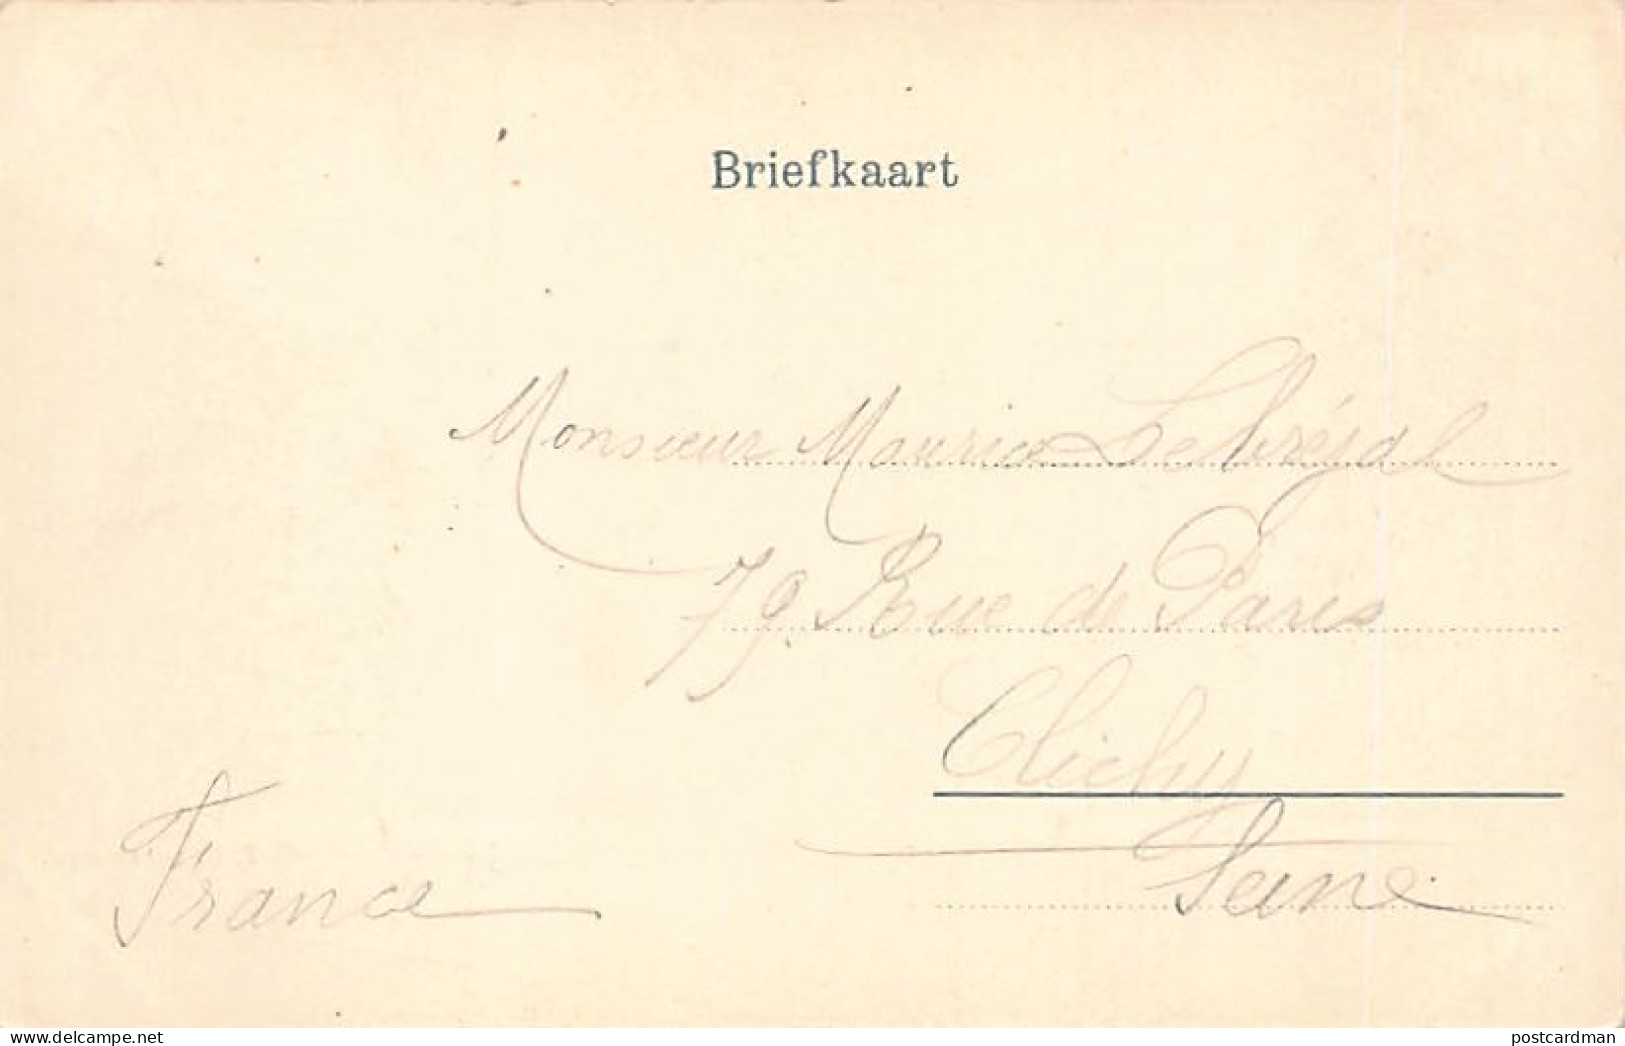 Briefkaart
Monsieur Maurice Lebréjal
79 Rue de Paris
Clichy
Seine
France
www.delcampe.net
postcardman